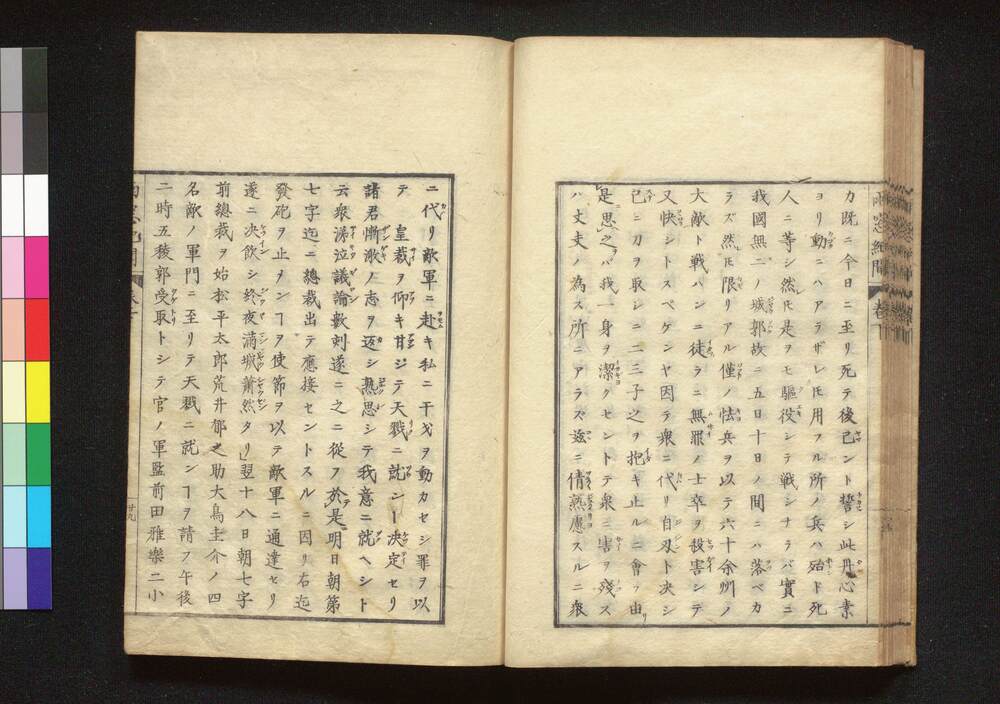 雨窓紀聞 巻下
力既ニ今日ニ至リ死テ後已ント誓シ此丹心素
ヨリ動ニハアラザレ𪜈用フル所ノ兵ハ殆ト死
人ニ等シ然𪜈是ヲモ駆役シテ戦シナラバ實ニ
我國無二ノ城郭故ニ五日十日ノ間ニハ落ベカ
ラズ然𪜈限リアル僅ノ怯兵ヲ以テ六十余州ノ
大敵ト戦ハンニ徒ラニ無罪ノ士卒ヲ殺害シテ
又快シトスベケンヤ因テ衆ニ代リ自刃ト决シ
已ニ刀ヲ取シニ二三子之ヲ抱キ止ルニ會ヲ由リ
是思之バ我一身ヲ潔クセントテ衆ニ害ヲ残ス
ハ丈夫ノ為ス所ニアラズ茲ニ倩熟慮スルニ衆
ニ代リ敵軍ニ赴キ私ニ干戈ヲ動カセシ罪ヲ以
テ 皇裁ヲ仰キ甘ジテ天戮ニ就ンヿ决定セリ
諸君慚激ノ志ヲ返シ熟思シテ我意ニ就ヘシト
云衆涕泣議論數刻遂ニ之ニ從フ於是明日朝第
七字迄ニ總裁出テ應接セントスルニ因リ右迄
發砲ヲ止ヲンヿヲ使節ヲ以テ敵軍ニ通達セリ
遂ニ决飲シ終夜満城蕭然タリ」翌十八日朝七字
前總裁ヲ始松平太郎荒井郁之助大鳥圭介ノ四
名敵ノ軍門ニ至リテ天戮ニ就ンヿヲ請フ午後
二時五稜郭受取トシテ官ノ軍監前田雅樂二小
廿九